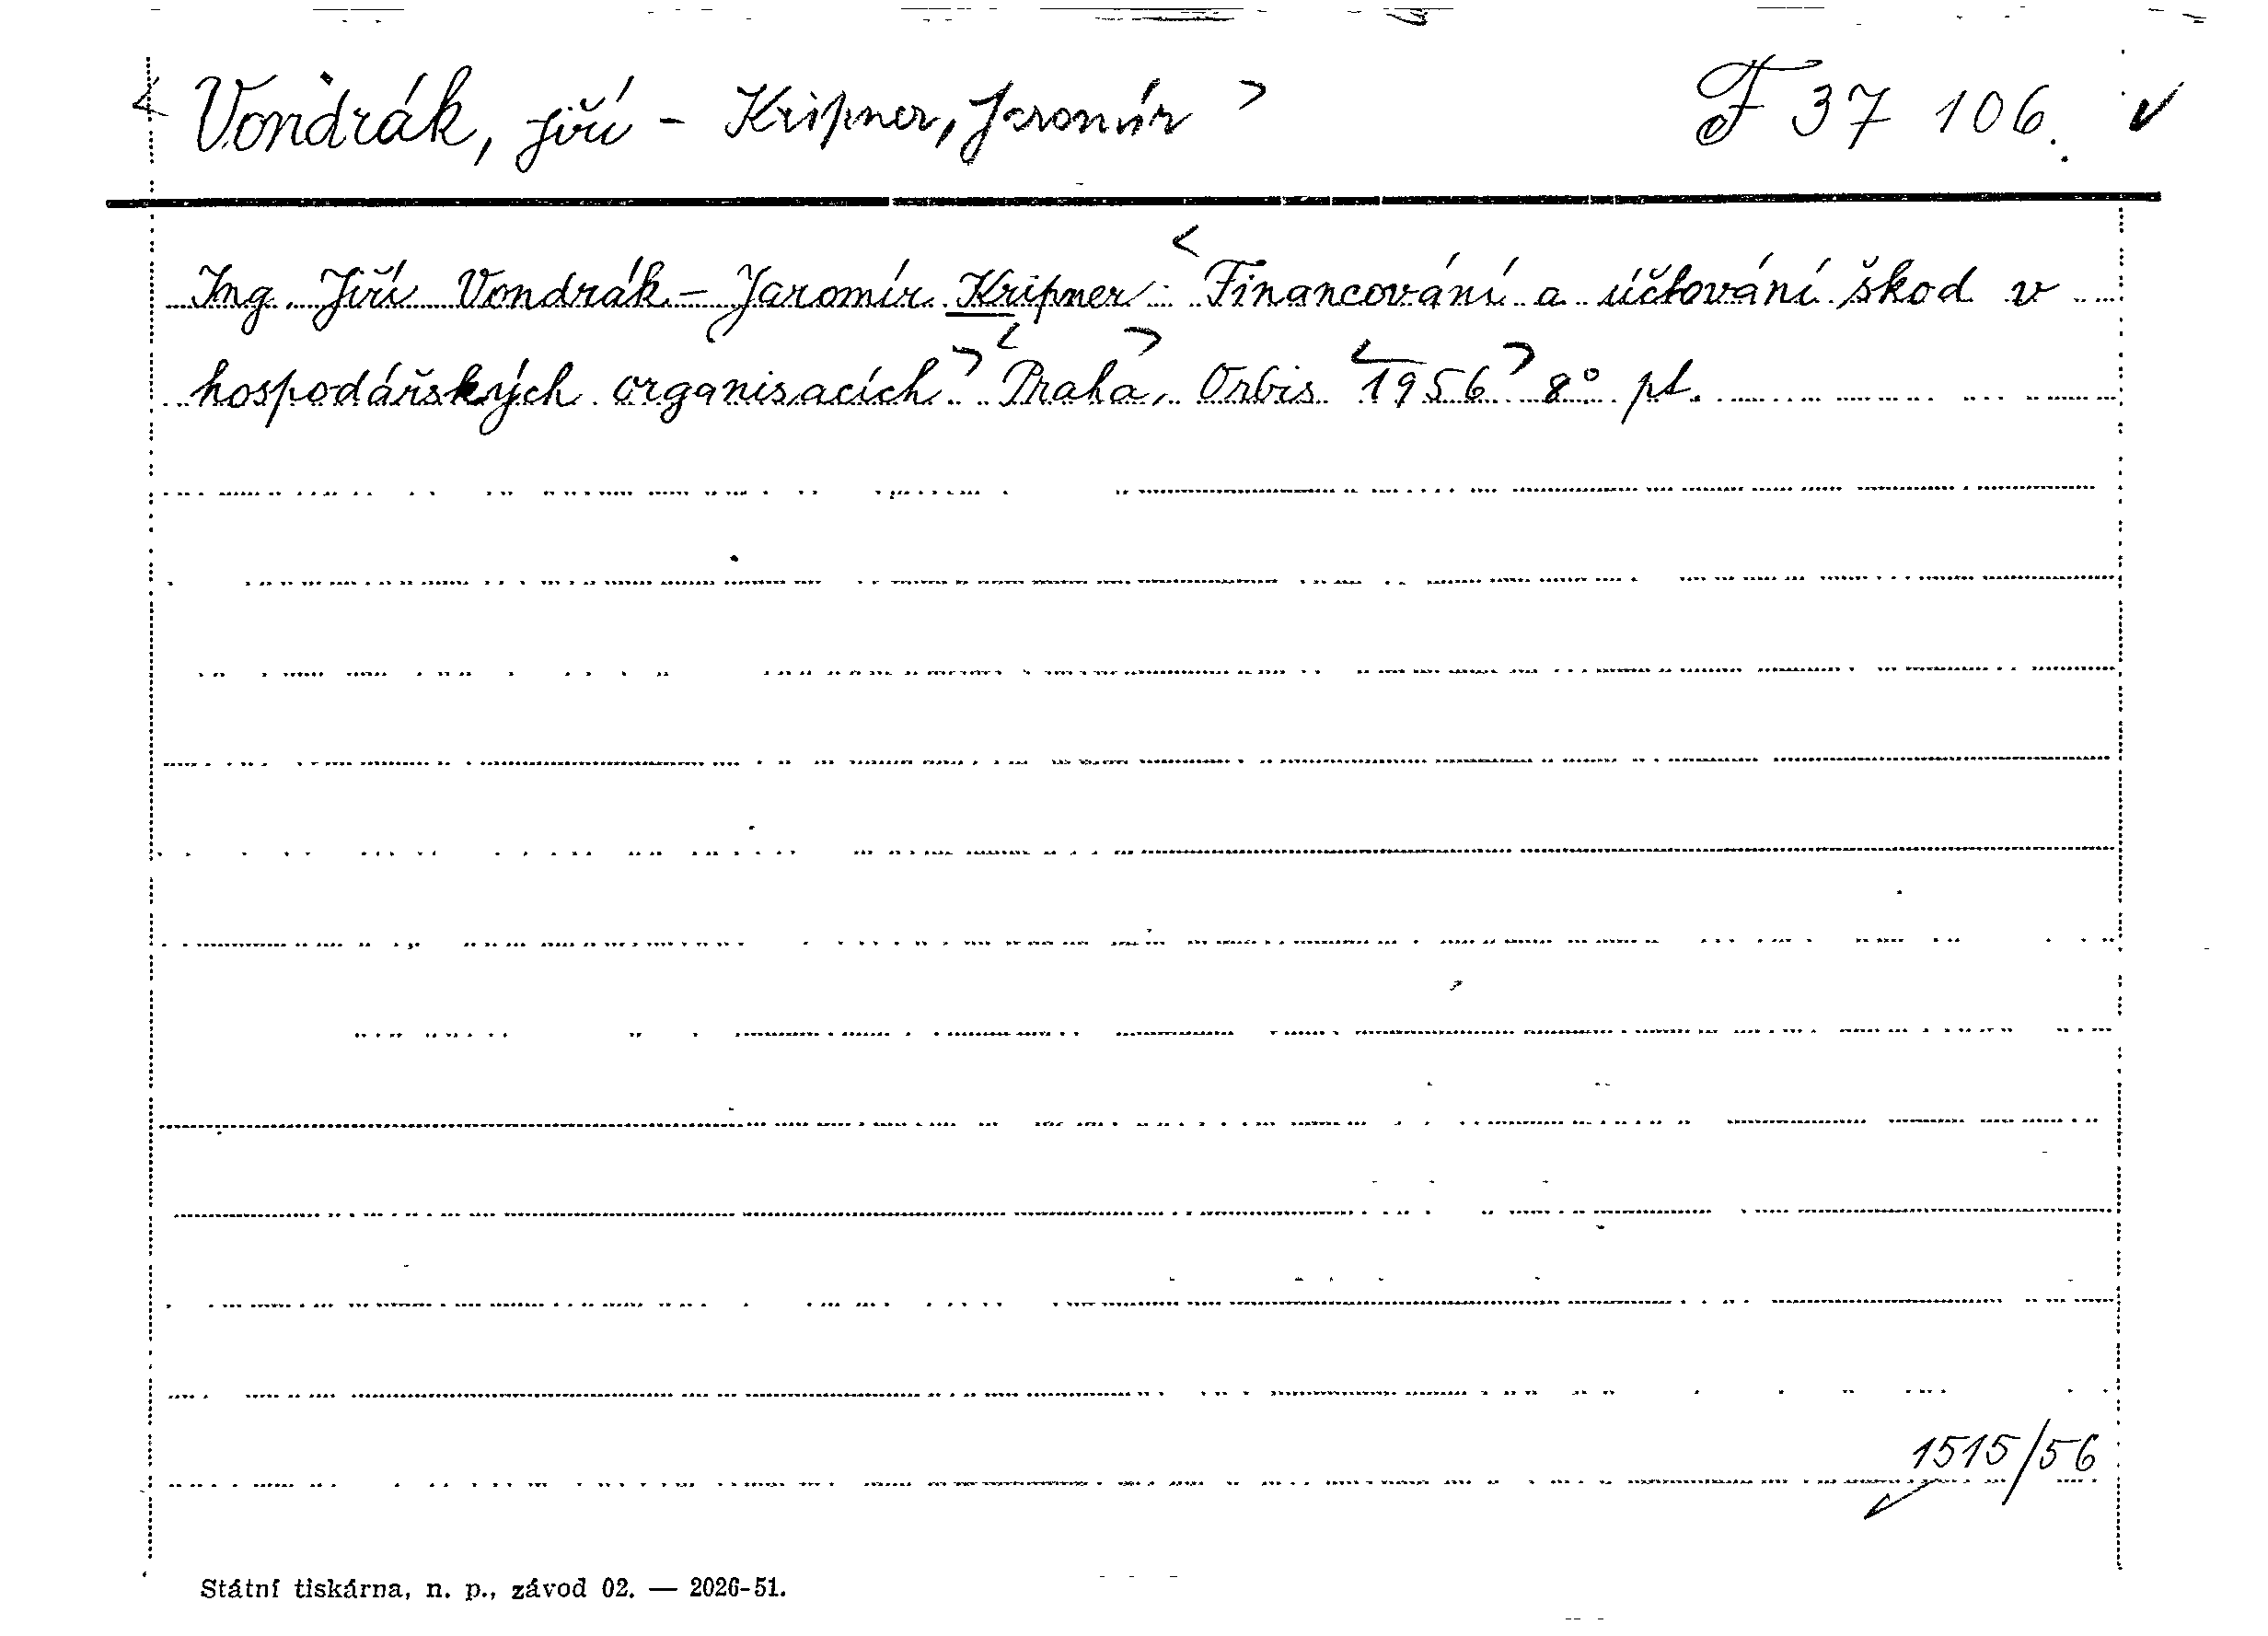 < Vondrák, Jiří - Kripner, Jaromír > F 37 106. ✓
Ing. Jiří Vondrák - Jaromír Kripner: < Financování a účtování škod v
hospodářských organisacích > < Praha >, Orbis < 1956 > 8° pt.
1515/56
Státní tiskárna, n. p., závod 02. — 2026-51.